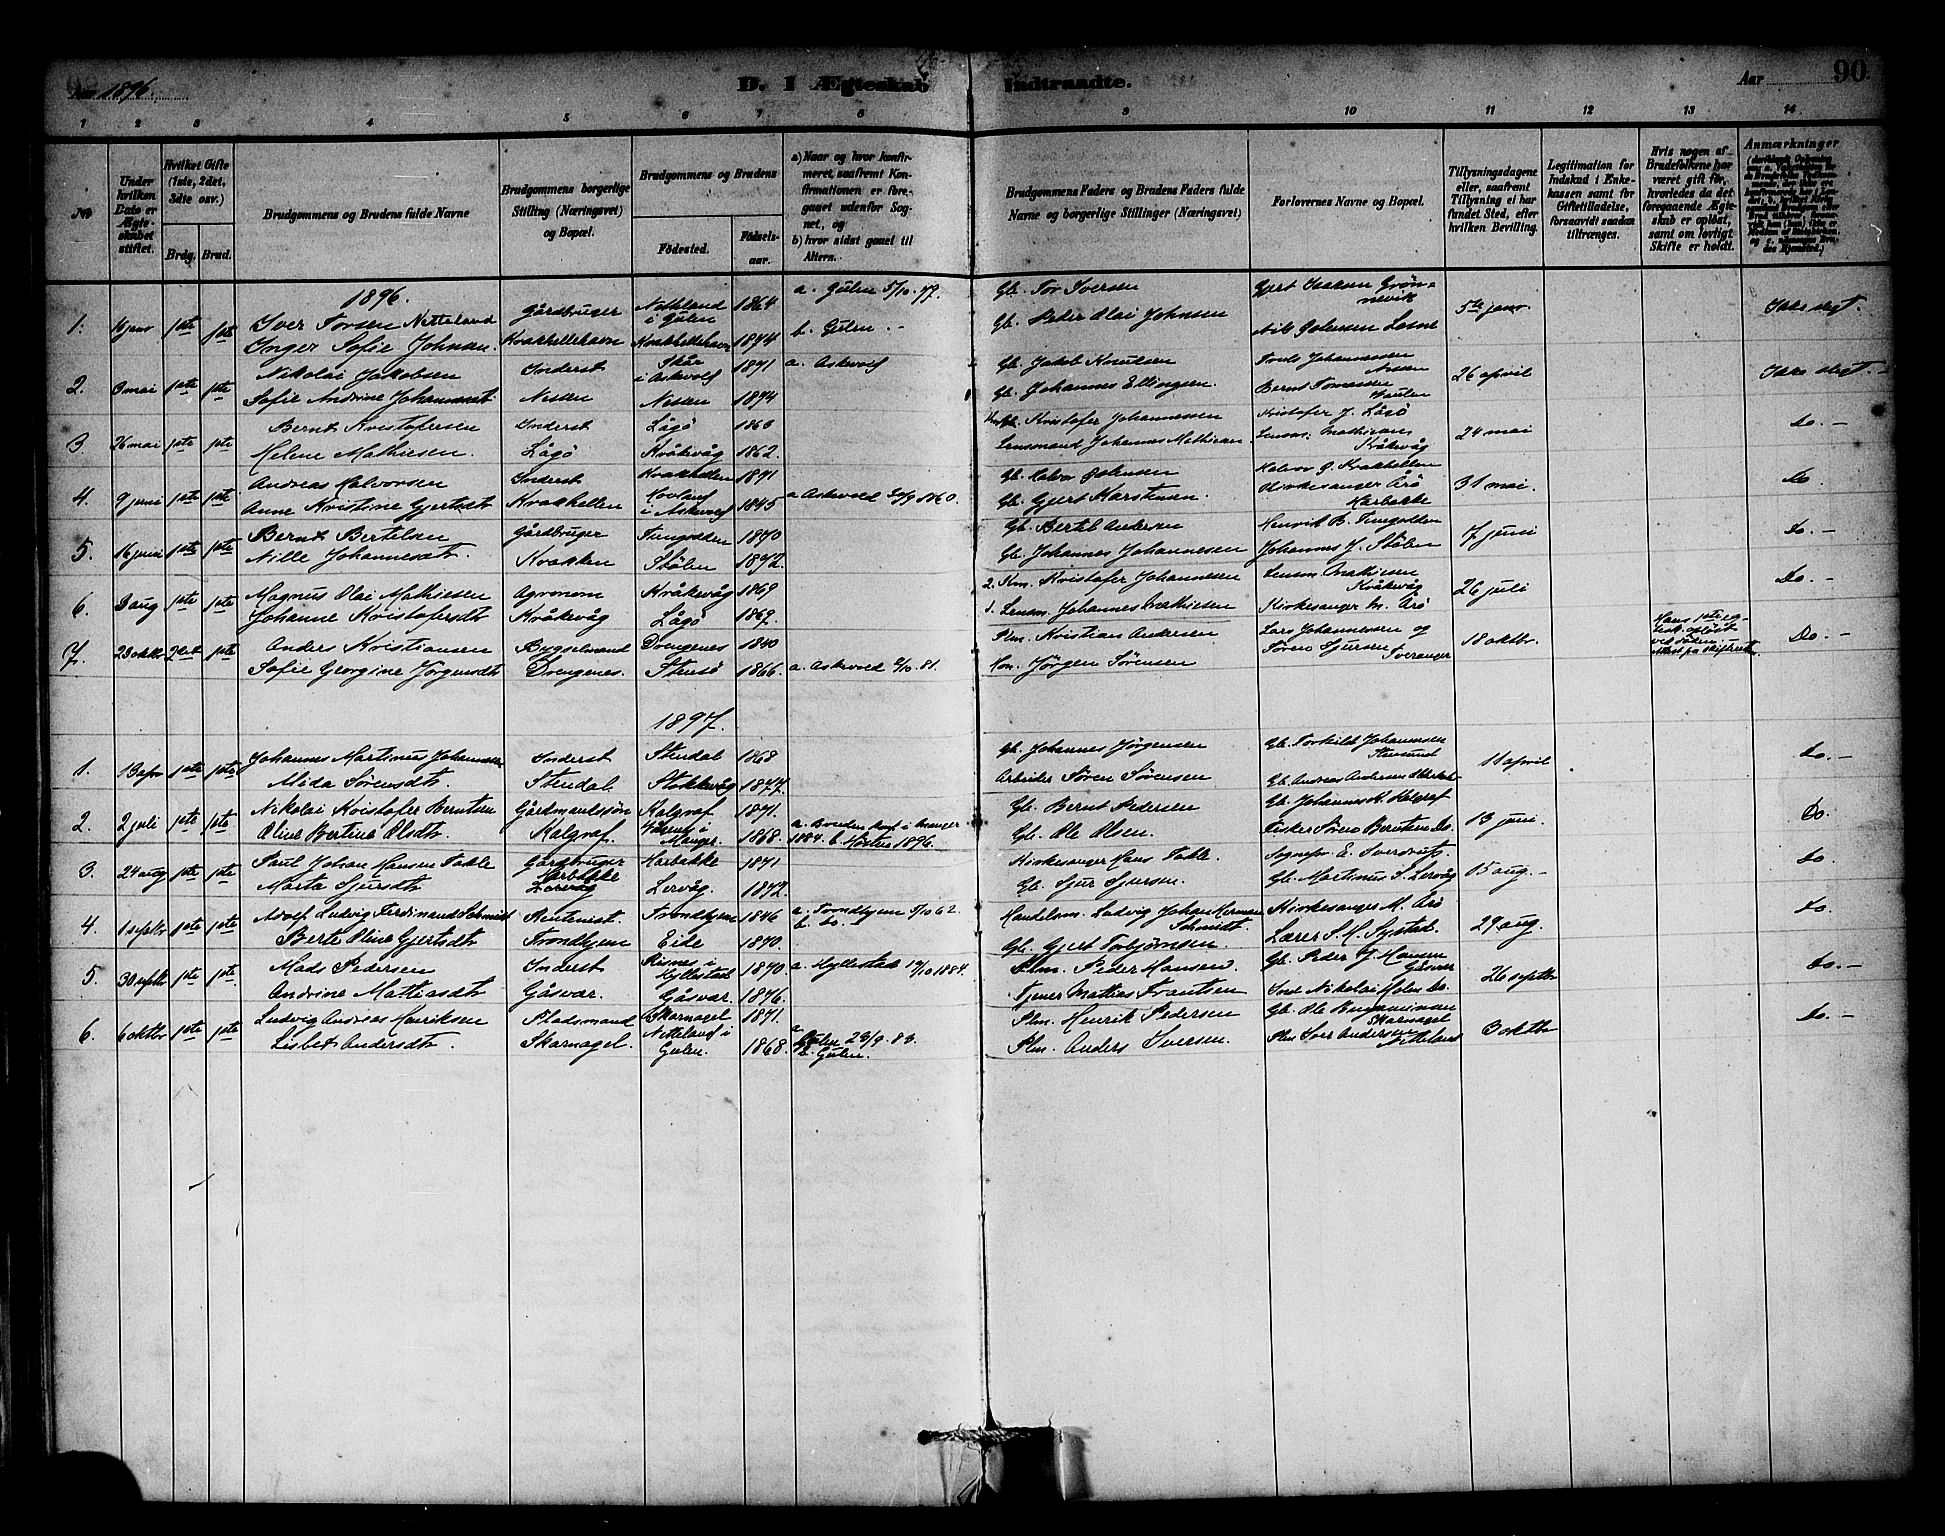 Aar 1896.
D. I Ægteskab Indtraadte.
Aar
90
1 2 3 4 5 6 7 8 9 10 11 12 13 14
No
Under hvilken Dato er Ægteskabet stiftet.
Hvilket Gifte (1ste, 2det, 3die osv.)
Brdg. Brud.
Brudgommens og Brudens fulde Navne
Brudgommens borgerlige Stilling (Næringsvei) og Bopæl.
Brudgommens og Brudens
Fødested.
Fødselsaar.
a) Naar og hvor konfirmeret, saafremt Konfirmationen er foregaaet udenfor Sognet, og
b) hvor sidst gaaet til Alters.
Brudgommens Faders og Brudens Faders fulde Navne og borgerlige Stillinger (Næringsvei)
Forlovernes Navne og Bopæl.
Tillysningsdagene eller, saafremt Tillysning ei har fundet Sted, efter hvilken Bevilling.
Legitimation for Indskud i Enkekassen samt for Giftetilladelse, forsaavidt saadan tiltrænges.
Hvis nogen af Brudefolkene har været gift før, hvorledes da det foregaaende Ægteskab er opløst, samt om lovligt Skifte er holdt.
Anmærkninger
1896.
1. 16 janr 1ste 1ste Iver Torsen Nitteland Gårdbruger Nitteland i Gulen 1864 a. Gulen 5/10. 77. Gb. Tor Iversen Gjert Isaksen Grønnevik 5te janr Ikke slegt.
Inger Sofie Johnsn. Kvakhellehavn Kvakhellehavn 1874 b. Gulen. - Gb. Peder Olai Johnsen
2. 3 mai 1ste 1ste Nikolai Jakobsen Inderst i Askvold 1871 a. Askvold Gb. Jakob Knudsen Johannessen Nesen 26 april Ikke slegt. -
Sofie Andrine Johannesdt Nesen Nesen 1874 Gb. Johannes Ellingsen. Bernt Tomassen
3 26 mai 1ste 1ste Bernt Kristofersen Inderst Lågø 1863 Kristofer Johannessen Kristofer J. Lågø 24 mai Do. -
Helene Mathiesen. Lågø Kråkevåg 1862. Lensmand Johannes Mathiesen Lensm. Mathiesen Kråkevåg
4. 9 juni 1ste 1ste Andreas Halvorsen Inderst Kvakhellen 1871 Gb. Halvor Johnsen Halvor J. Kvakhellen 31 mai Do. -
Anne Kristine Gjertsdt Kvakhellen Hovland i Askvold 1845 a Askvold 30/9 1860. Gb. Gjert Karstensen. Kirkesanger Arø Harbakke
5. 16 juni 1ste 1ste Bernt Bertelsen Gårdbruger Tungodden 1870 Gb. Bertel Andersen Henrik B. Tungodden 7 juni Do. -
Nille Johannesdt. Kvakken Stølen 1872. Gb. Johannes Johannesen Johannes J. Stølen
6. 3 aug 1ste 1ste Magnus Olai Mathiesen Agronom Kråkevåg 1869 2. Km. Kristofer Johannesen Lensm. Mathiesen Kråkevåg 26 juli Do. -
Johanne Kristofersdt Kråkevåg Lågø 1867. 1. Lensm. Johannes Mathiesen Kirkesanger M. Arø
7. 23 oktbr 2det 1ste Anders Kristiansen Bygselmand Drengenes 1840 Plm. Kristian Andersen Lars Johannesen og 18 oktbr. Hans 1ste egtesk. opløst ved døden. Attest på skifteret. Do. -
Sofie Georgine Jørgensdt Drengenes. Stensø 1866. a. Askvold 2/10. 81. Jørgen Sørensen Søren Sjursen Tveranger
1897.
1. 19 apr 1ste 1ste Johannes Martinus Johannesen Inderst Stendal 1868 Gb. Johannes Jørgensen Gb. Torkild Johannesen Stensund 11 april Do. -
Alida Sørensdt. Stendal Stokkevåg 1877. Arbeider Søren Sørensen Gb. Andreas Andersen
2. 2 juli 1ste 1ste Nikolai Kristofer Berntsen Gårdmandssøn Kalgraf 1871. a. Bruden konf. i Manger 1884. b. Høsten 1896. Gb. Bernt Pedersen Gb. Johannes K. Kalgraf 13 juni. Do.
Oline Bertine Olsdt. Kalgraf. i Manger. 1868. Gb. Ole Olsen. Fisker Søren Berntsen Do.
3. 24 aug 1ste 1ste Paul Johan Hansen Takle Gårdbruger Harbakke 1871 Kirkesanger Hans Takle. Sognepr. E. Sverdrup. 15 aug. - Do
Marta Sjursdt Harbakke Lervåg Lervåg. 1872. Gb. Sjur Sjursen. Gb. Martinus S. Lervåg
4. 1 septbr 1ste 1ste Adolf Ludvig Ferdinand Schmidt Rentenist. Trondhjem 1846 a. Trondhjem 5/10 62. b. Do. - Handelsm. Ludvig Johan Herman Schmidt. Kirkesanger M. Arø 29 aug. Do.
Berte Oline Gjertsdt Trondhjem Eide 1870. Gb. Gjert Torbjørnsen. Lærer S. M. Systad.
5. 30 septbr 1ste 1ste Mads Pedersen Inderst Risnes i Hyllestad 1870 a. Hyllestad 12/10 1884. Plm. Peder Hansen. Gb. Peder J. Hansen Gåsvær 26 septbr Do. -
Andrine Mattiasdt Gåsvær. Gåsvær. 1876. Tjener Mattias Frantsen Nikolai Holm Do.
6. 6 oktbr 1ste 1ste Ludvig Andreas Henriksen Pladsmand Skarnagel 1871. a Gulen 23/9. 83. b. Gulen. Plm. Henrik Pedersen Gb. Ole Skarnagel 3 oktbr Do. -
Lisbet Andersdt. Skarnagel. Nitteland i Gulen. 1868. Plm. Anders Iversen. Plm Iver Andersen Nitteland